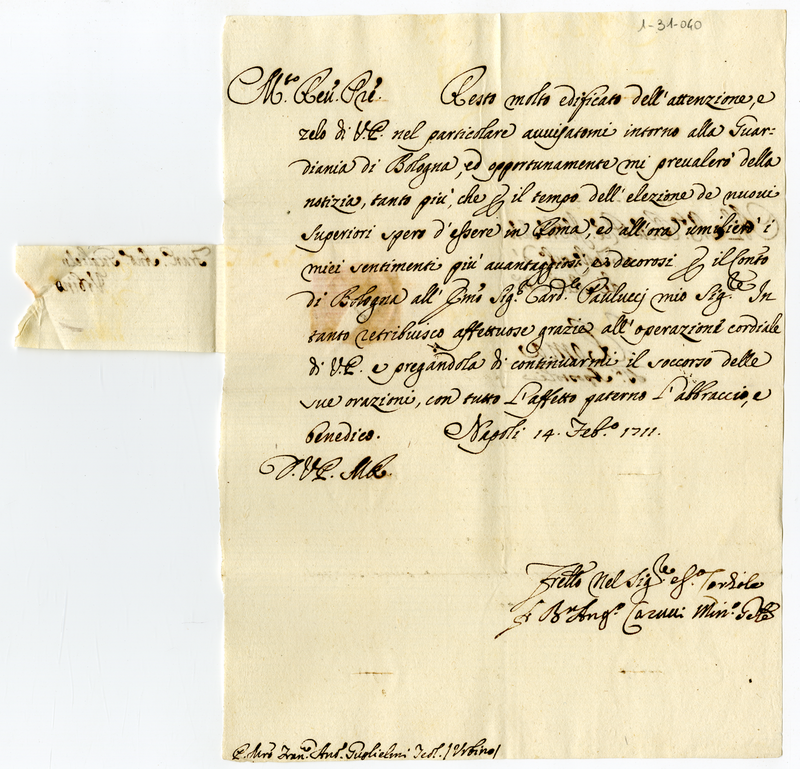 1-31-040
M.to Reu. Pre. Resto molto edificato dell'attenzione, e
zelo di V.P. nel particolare auuisatomi intorno alla Guar:
diania di Bologna, ed opportunamente mi preualerò della
notizia, tanto più, che il tempo dell'elezione de nuoui
Superiori spero d'essere in Roma, ed all'ora umilierò i
miei sentimenti più auantaggiosi, e decorosi il
di Bologna all' Sig.r Card.le Paulucci mio Sig.re In
tanto retribuisco affettuose grazie all'operazione cordiale
di V.P. e pregandola di continuarmi il soccorso delle
sue orazioni, con tutto l'affetto paterno l'abbraccio, e
benedico. Napoli 14. Feb.o 1711.
D. V.P. M.R.
nel Sig.re
Ang.o Carucci Min.o
P. Mro Fran.o Ant.o Guglielmi Teol. / Urbino /